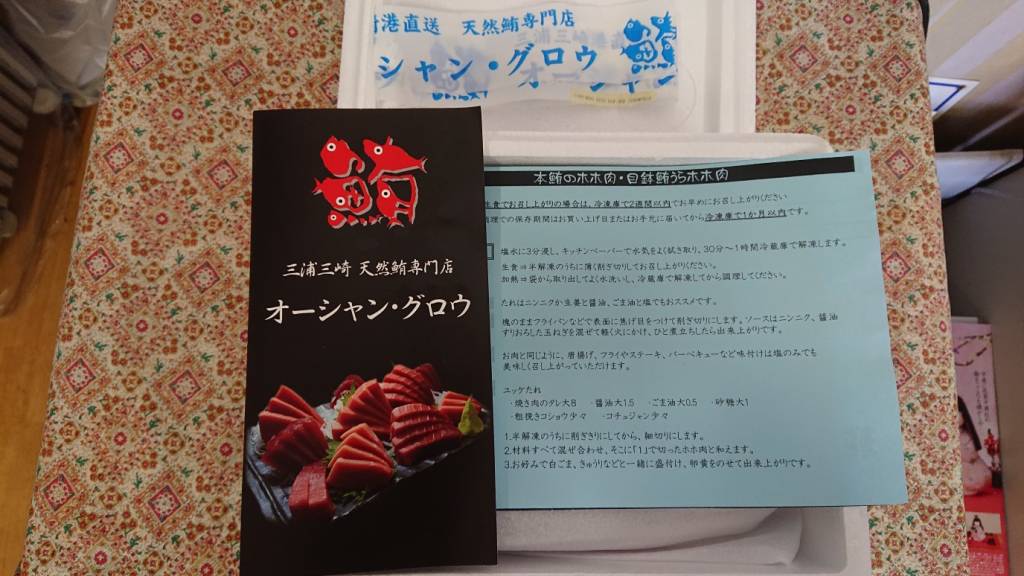 港直送 天然鮪専門店
シャン・グロウ オーシャン
三浦三崎 天然鮪専門店
オーシャン・グロウ
本鮪のホホ肉・目鉢鮪うらホホ肉
生食でお召し上がりの場合は、冷凍庫で2週間以内でお早めにお召し上がりください
理での保存期間はお買い上げ日またはお手元に届いてから冷凍庫で1か月以内です。
塩水に3分浸し、キッチンペーパーで水気をよく拭き取り、30分～1時間冷蔵庫で解凍します。
生食⇒半解凍のうちに薄く削ぎ切りしてお召し上がりください。
加熱⇒袋から取り出してよく水洗いし、冷蔵庫で解凍してから調理してください。
たれはニンニクか生姜と醤油、ごま油と塩でもおススメです。
塊のままフライパンなどで表面に焦げ目をつけて削ぎ切りにします。ソースはニンニク、醤油
すりおろした玉ねぎを混ぜて軽く火にかけ、ひと煮立ちしたら出来上がりです。
お肉と同じように、唐揚げ、フライやステーキ、バーベキューなど味付けは塩のみでも
美味しく召し上がっていただけます。
ユッケたれ
・焼き肉のタレ大8 ・醤油大1.5 ・ごま油大0.5 ・砂糖大1
・粗挽きコショウ少々 ・コチュジャン少々
1.半解凍のうちに削ぎきりにしてから、細切りにします。
2.材料すべて混ぜ合わせ、そこに「1」で切ったホホ肉と和えます。
3.お好みで白ごま、きゅうりなどと一緒に盛付け、卵黄をのせて出来上がりです。